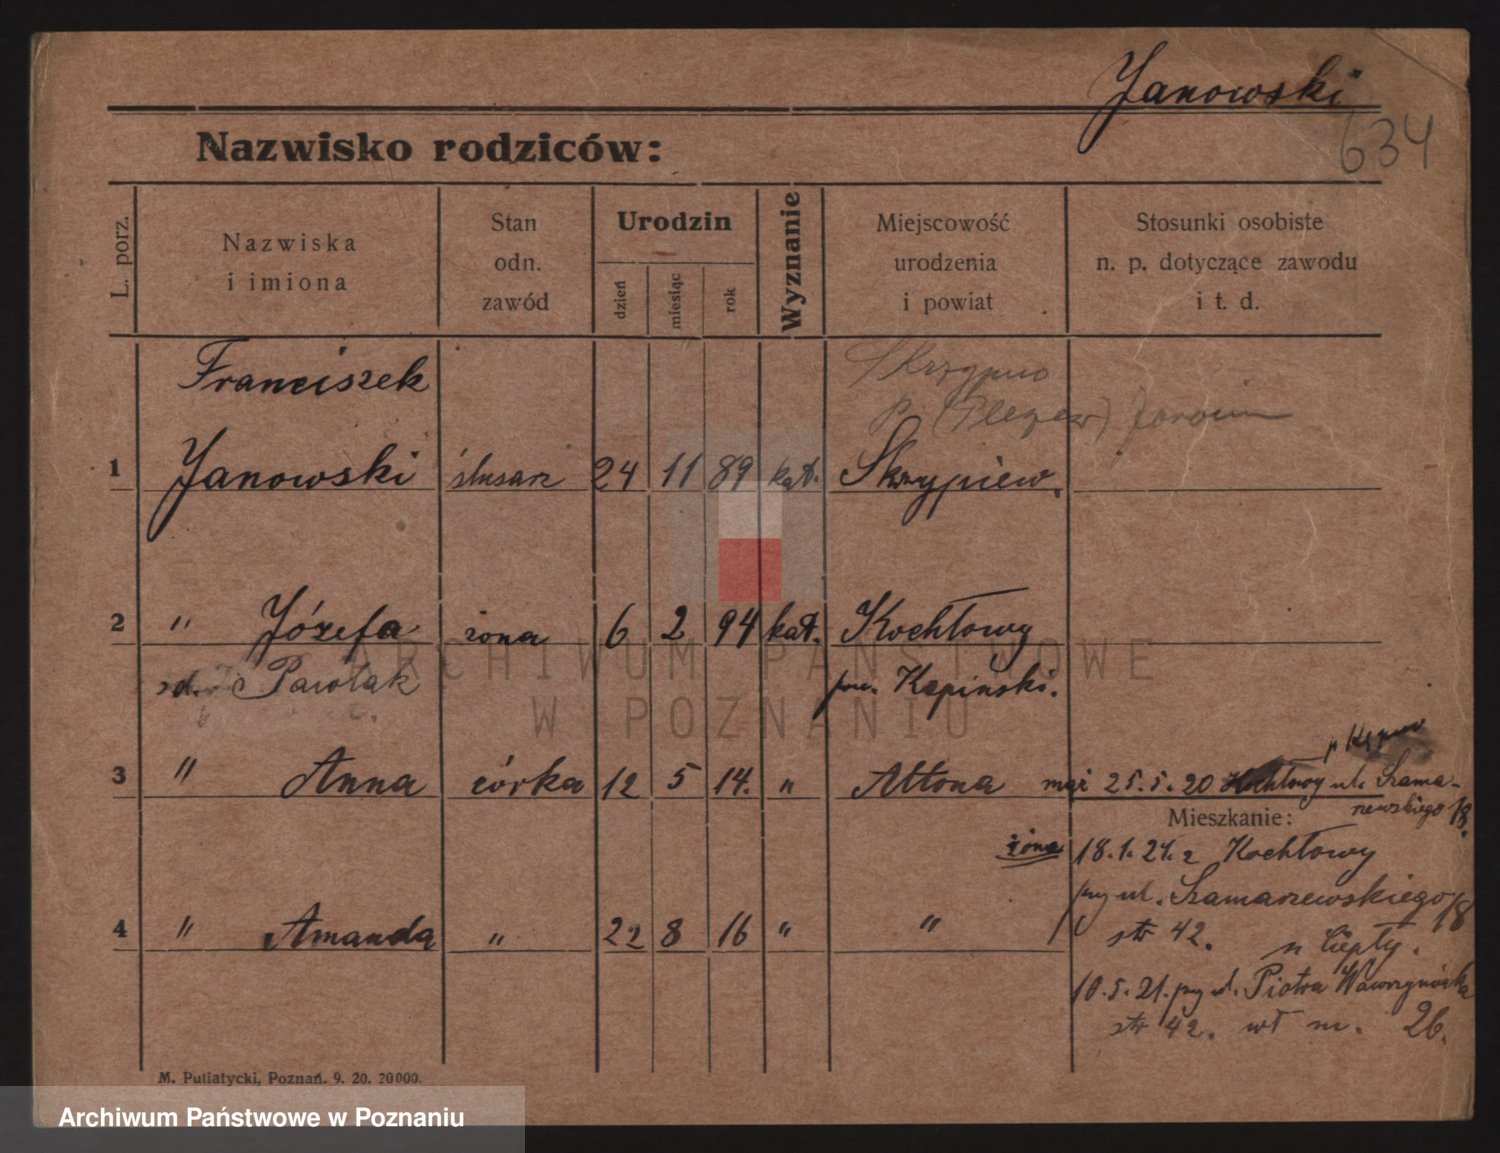 Janowski
634
Nazwisko rodziców:
L. porz.
Nazwiska
i imiona
Stan
odn.
zawód
Urodzin
dzień
miesiąc
rok
Wyznanie
Miejscowość
urodzenia
i powiat
Stosunki osobiste
n. p. dotyczące zawodu
i t. d.
Franciszek
Skrzypno
p. (Pleszew) Jarocin
1 Janowski ślusarz 24 11 89 kat. Skrzypiew.
2 " Józefa żona 6 2 94 kat. Kochłowy
zd. Pawlak pow. Kępiński.
3 " Anna córka 12 5 14. " Altona mąż 25.5.20 Kochłowy ul. Szama-
rzewskiego 18.
Mieszkanie:
żona 18.1.21. z Kochłowy
przy ul. Szamarzewskiego 18
4 " Amanda " 22 8 16 " "
str 42. n Ciepły.
10.5.21. przy ul. Piotra Wawrzyniaka
str 42. wł m. 26.
M. Putiatycki, Poznań. 9. 20. 20000.
ARCHIWUM PAŃSTWOWE
W POZNANIU
Archiwum Państwowe w Poznaniu